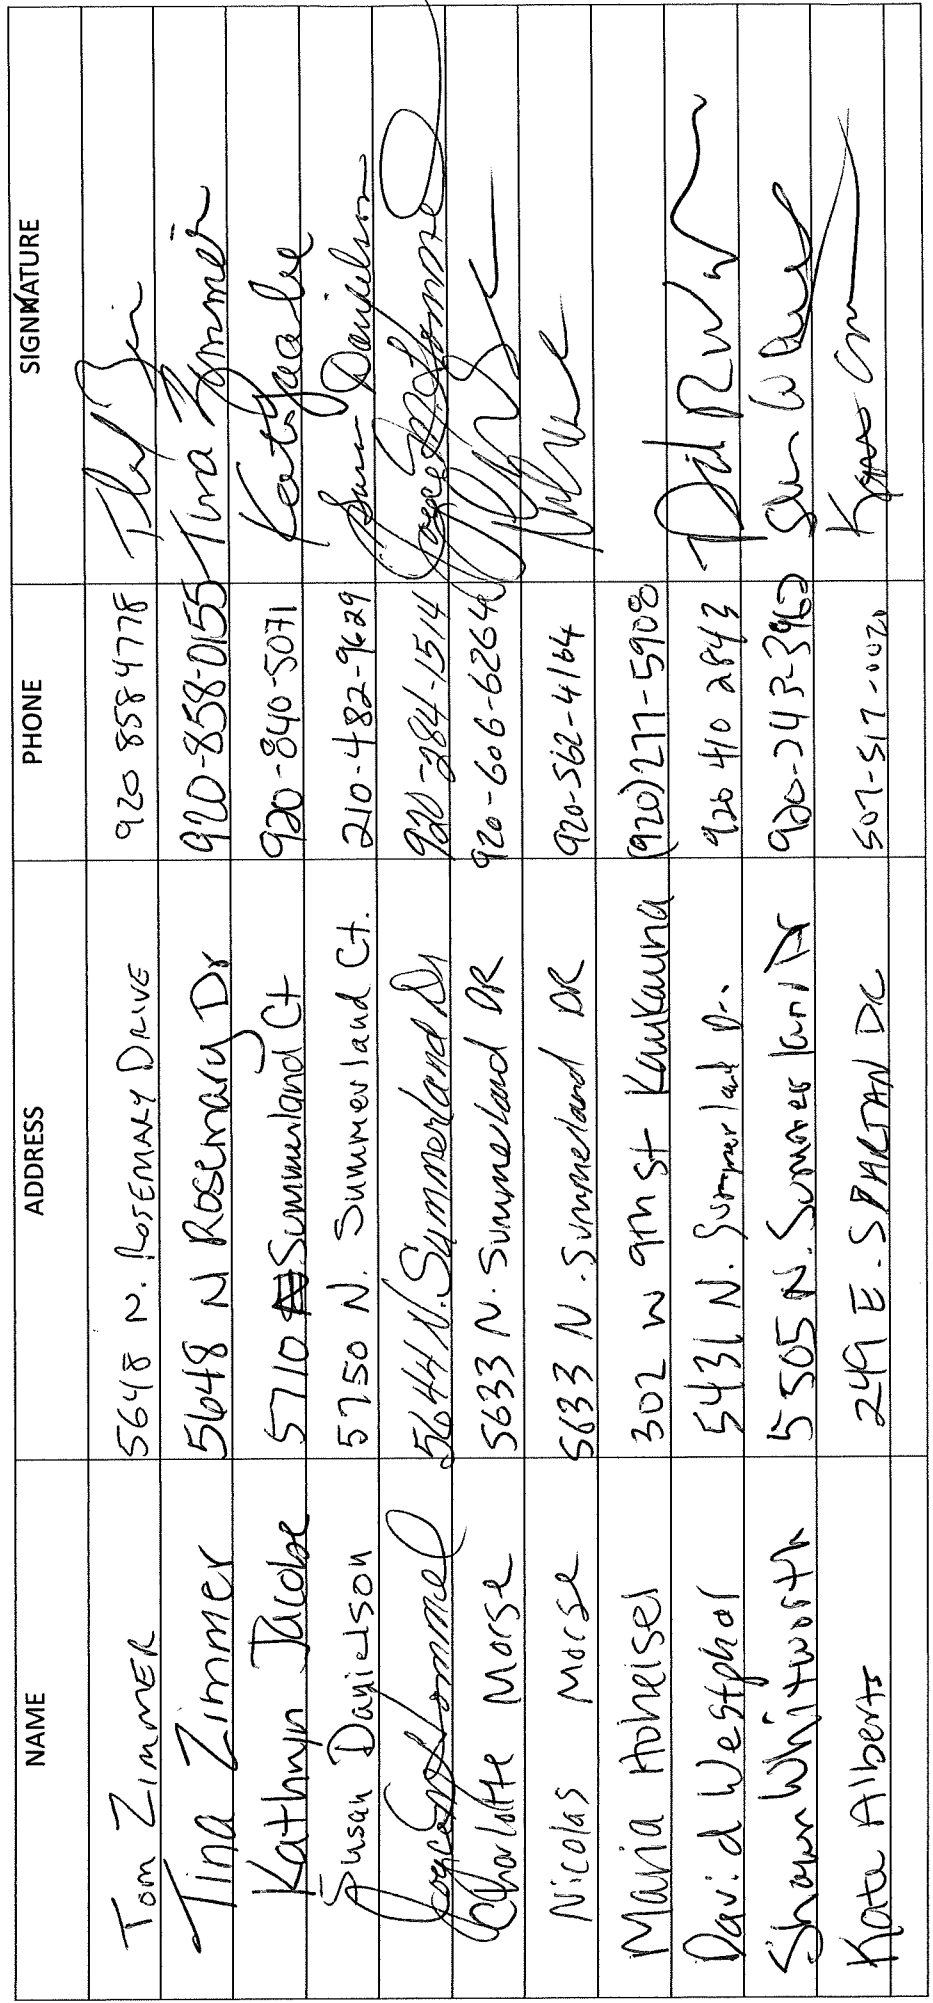 NAME ADDRESS PHONE SIGNATURE
Tom Zimmer 5648 N. Rosemary Drive 920 858 4778
Tina Zimmer 5648 N Rosemary Dr 920-858-0155 Tina Zimmer
Kathryn Jacobe 5710 N. Summerland Ct 920-840-5071
Susan Danielson 5750 N. Summerland Ct. 210-482-9629 Susan Danielson
5644 N. Summerland Dr 920-284-1514
Charlotte Morse 5633 N. Summerland DR 920-606-6264
Nicolas Morse 5633 N. Summerland DR 920-562-4164
Maria Hoheisel 302 W 9th St Kaukauna (920)277-5908
David Westphal 5431 N. Summerland Dr. 920 410 2843
Shawn Whitworth 5505 N. Summerland Dr 920-243-3962
Kate Alberts 249 E. SPARTAN DR 507-517-0020